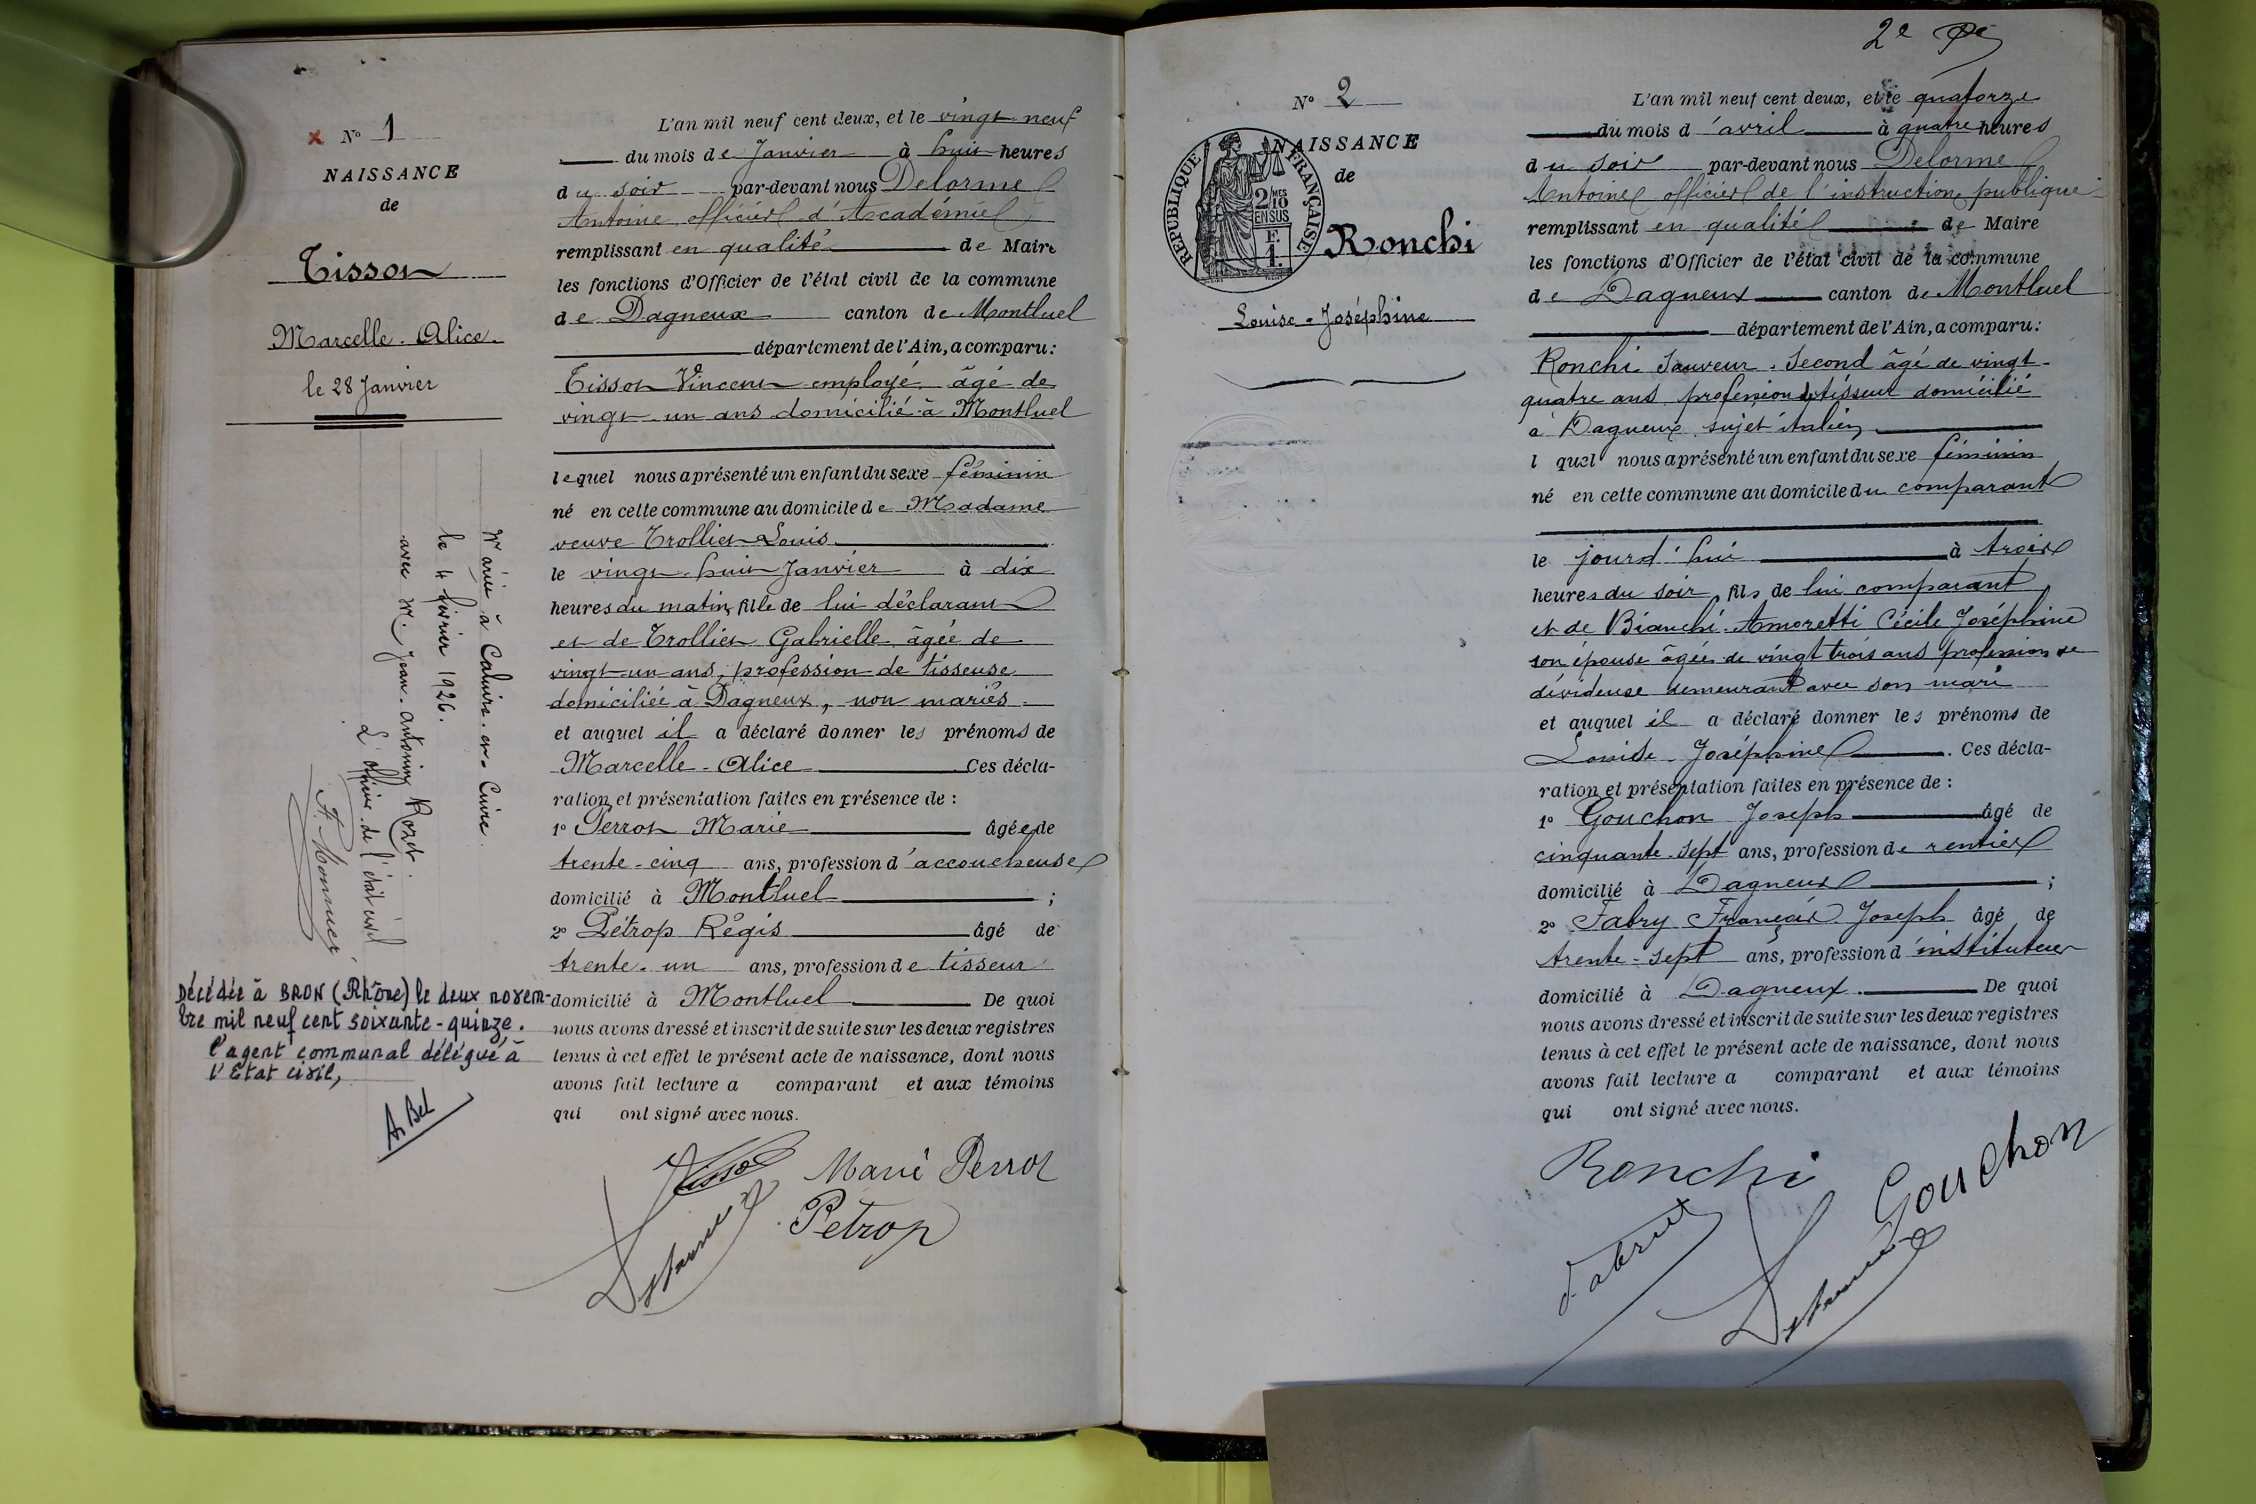 N° 1
NAISSANCE
de
Tisson
Marcelle-Alice.
le 28 Janvier
Mariée à Caluire-en-Cuire
le 4 février 1926.
avec M. Jean-Antoine Rozet.
L'officier de l'état civil
Décédée à BRON (Rhône) le deux novem-
bre mil neuf cent soixante-quinze.
l'agent communal délégué à
l'Etat civil,
A. Bel
L'an mil neuf cent deux, et le vingt neuf
du mois de Janvier à huit heures
du soir par-devant nous Delorme
Antoine officier d'Académie,
remplissant en qualité de Maire
les fonctions d'Officier de l'état civil de la commune
de Dagneux canton de Montluel
département de l'Ain, a comparu:
Tisson Vincent employé âgé de
vingt-un ans domicilié à Montluel
lequel nous a présenté un enfant du sexe féminin
né en cette commune au domicile de Madame
veuve Trollier Louis
le vingt-huit Janvier à dix
heures du matin, fille de lui déclarant
et de Trollier Gabrielle âgée de
vingt-un ans, profession de tisseuse
domiciliée à Dagneux, non mariés.
et auquel il a déclaré donner les prénoms de
Marcelle-Alice Ces décla-
ration et présentation faites en présence de :
1° Perrot Marie âgée de
trente-cinq ans, profession d'accoucheuse
domicilié à Montluel ;
2° Pétrop Régis âgé de
trente-un ans, profession de tisseur
domicilié à Montluel De quoi
nous avons dressé et inscrit de suite sur les deux registres
tenus à cet effet le présent acte de naissance, dont nous
avons fait lecture a comparant et aux témoins
qui ont signé avec nous.
Tisson Marie Perrot
Pétrop
Delorme
2e
N° 2
NAISSANCE
de
RÉPUBLIQUE FRANÇAISE
2 MES
10
EN SUS
F.
1.
Ronchi
Louise-Joséphine
L'an mil neuf cent deux, et le quatorze
du mois d'avril à quatre heures
du soir par-devant nous Delorme
Antoine officier de l'instruction publique
remplissant en qualité de Maire
les fonctions d'Officier de l'état civil de la commune
de Dagneux canton de Montluel
département de l'Ain, a comparu:
Ronchi Sauveur. Second âgé de vingt-
quatre ans profession de tisseur domicilié
à Dagneux sujet italien
l quel nous a présenté un enfant du sexe féminin
né en cette commune au domicile du comparant
le jourd'hui à trois
heures du soir, fils de lui comparant
et de Bianchi-Amoretti Cécile Joséphine
son épouse âgée de vingt trois ans profession de
dévideuse demeurant avec son mari
et auquel il a déclaré donner les prénoms de
Louise-Joséphine . Ces décla-
ration et présentation faites en présence de :
1° Gouchon Joseph âgé de
cinquante-sept ans, profession de rentier
domicilié à Dagneux ;
2° Fabry François Joseph âgé de
trente-sept ans, profession d'instituteur
domicilié à Dagneux. De quoi
nous avons dressé et inscrit de suite sur les deux registres
tenus à cet effet le présent acte de naissance, dont nous
avons fait lecture a comparant et aux témoins
qui ont signé avec nous.
Ronchi Gouchon
Delorme